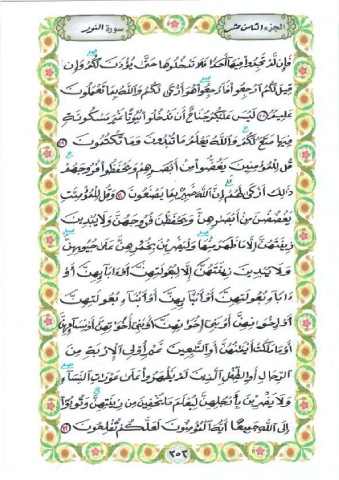 الجزء الثامن عشر
سورة النور
فإن لم تجدوا فيها أحدا فلا تدخلوها حتى يؤذن لكم وإن
قيل لكم ارجعوا فارجعوا هو أزكى لكم والله بما تعملون
عليم ٢٨ ليس عليكم جناح أن تدخلوا بيوتا غير مسكونة
فيها متاع لكم والله يعلم ما تبدون وما تكتمون ٢٩
قل للمؤمنين يغضوا من أبصرهم ويحفظوا فروجهم
ذلك أزكى لهم إن الله خبير بما يصنعون ٣٠ وقل للمؤمنت
يغضضن من أبصرهن ويحفظن فروجهن ولا يبدين
زينتهن إلا ما ظهر منها وليضربن بخمرهن على جيوبهن
ولا يبدين زينتهن إلا لبعولتهن أو ءابائهن أو
ءاباء بعولتهن أو أبنائهن أو أبناء بعولتهن
أو إخونهن أو بني إخونهن أو بني أخوتهن أو نسائهن
أو ما ملكت أيمنهن أو التبعين غير أولي الإربة من
الرجال أو الطفل الذين لم يظهروا على عورت النساء
ولا يضربن بأرجلهن ليعلم ما يخفين من زينتهن وتوبوا
إلى الله جميعا أيه المؤمنون لعلكم تفلحون ٣١
٣٥٣